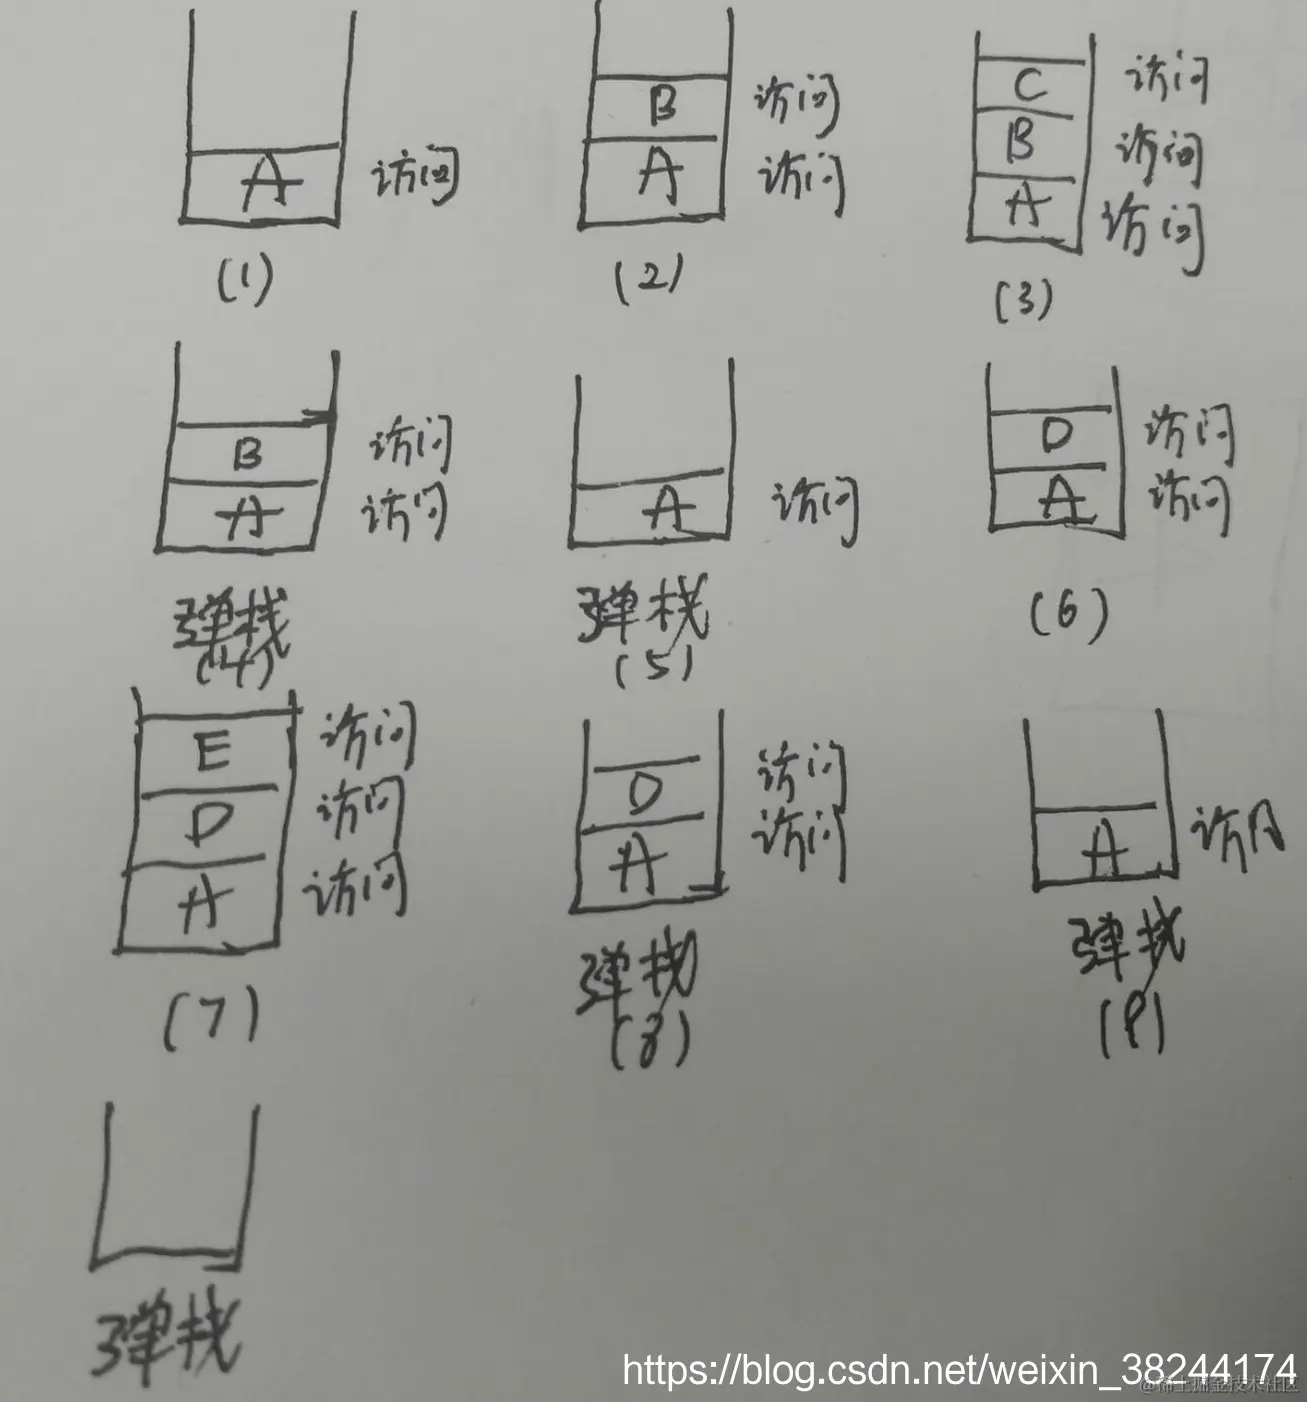 A 访问
(1)
B 访问
A 访问
(2)
C 访问
B 访问
A 访问
(3)
B 访问
A 访问
弹栈
(4)
A 访问
弹栈
(5)
D 访问
A 访问
(6)
E 访问
D 访问
A 访问
(7)
D 访问
A 访问
弹栈
(8)
A 访问
弹栈
(9)
弹栈
https://blog.csdn.net/weixin_38244174
@稀土掘金技术社区